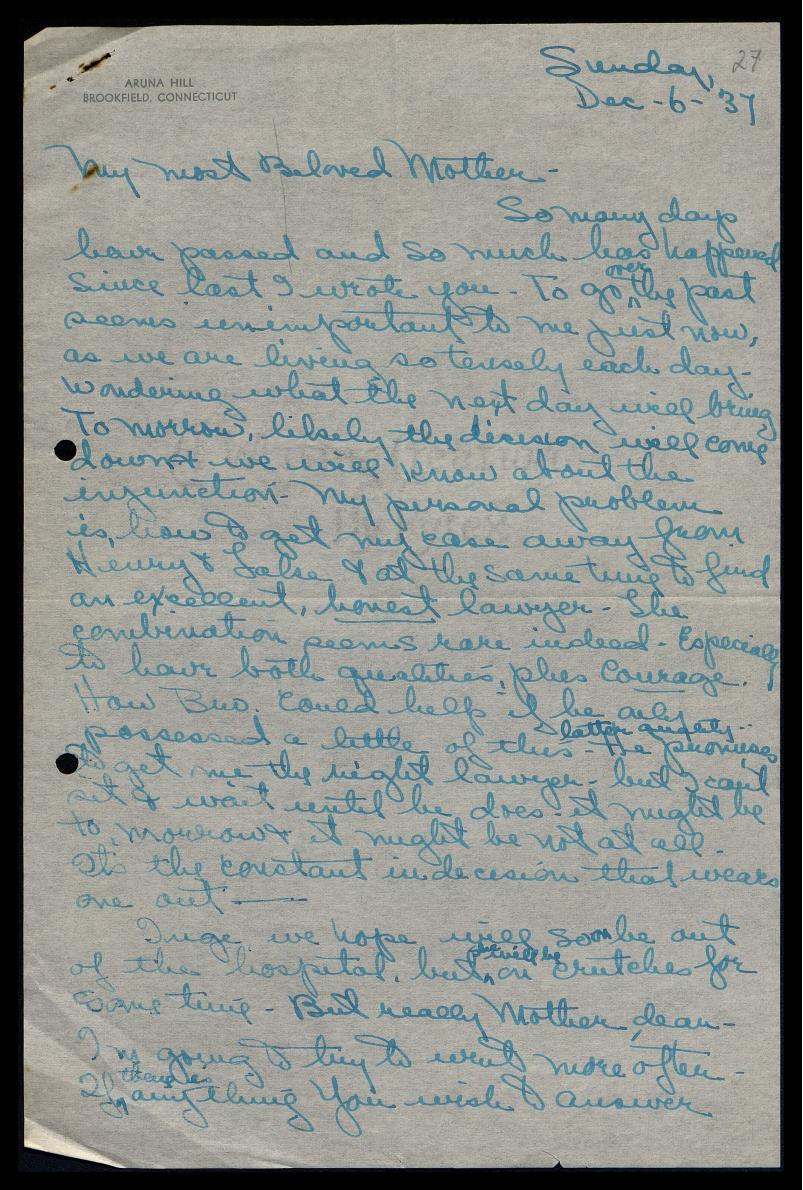 27
ARUNA HILL
BROOKFIELD, CONNECTICUT
Sunday,
Dec -6- '37
My most Beloved Mother -
So many days
have passed and so much has happened
since last I wrote you - To go over the past
seems unimportant to me just now,
as we are living so tensely each day -
wondering what the next day will bring
To morrow, likely the decision will come
down & we will know about the
injunction - My personal problem
is, how to get my case away from
Henry & & at the same time to find
an excellent, honest lawyer - The
combination seems rare indeed - Especially
to have both qualities, plus Courage.
How Bro. could help if he only
possessed a little of this latter quality - He promises
to get me the right lawyer - but I can't
sit & wait until he does - it might be
to morrow & it might be not at all -
It's the constant indecision that wears
one out -
Inge we hope will soon be out
of the hospital, but will be on crutches for
some time - But really Mother dear -
I'm going to try to write more often -
If there is anything You wish to answer